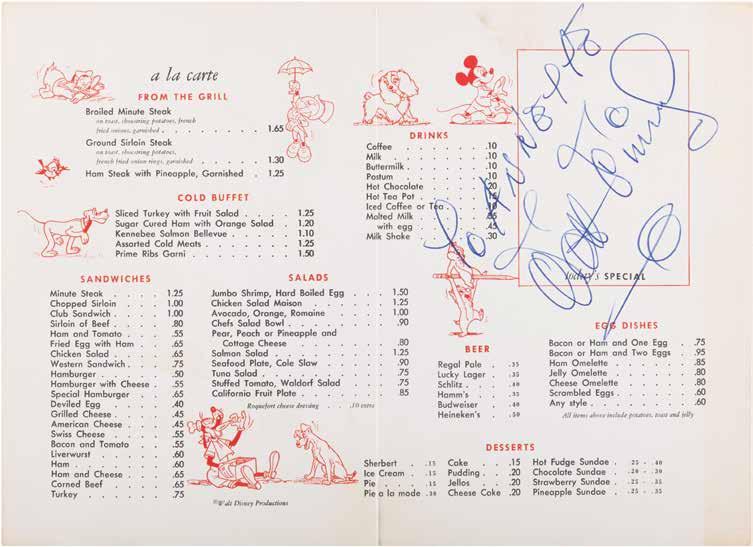 a la carte
FROM THE GRILL
Broiled Minute Steak
on toast, shoestring potatoes, french
fried onions, garnished . . . . . . . 1.65
Ground Sirloin Steak
on toast, shoestring potatoes,
french fried onion rings, garnished . . . . 1.30
Ham Steak with Pineapple, Garnished . 1.25
COLD BUFFET
Sliced Turkey with Fruit Salad . . . . 1.25
Sugar Cured Ham with Orange Salad . 1.20
Kennebec Salmon Bellevue . . . . . 1.10
Assorted Cold Meats . . . . . . 1.25
Prime Ribs Garni . . . . . . . 1.50
SANDWICHES
Minute Steak . . . . 1.25
Chopped Sirloin . . . 1.00
Club Sandwich . . . . 1.00
Sirloin of Beef . . . . .80
Ham and Tomato . . . .55
Fried Egg with Ham . . .65
Chicken Salad . . . . .65
Western Sandwich . . . .75
Hamburger . . . . . .50
Hamburger with Cheese . .55
Special Hamburger . . . .65
Deviled Egg . . . . .40
Grilled Cheese . . . . .45
American Cheese . . . .45
Swiss Cheese . . . . .55
Bacon and Tomato . . . .55
Liverwurst . . . . . .60
Ham . . . . . . . .60
Ham and Cheese . . . .65
Corned Beef . . . . .65
Turkey . . . . . . .75
SALADS
Jumbo Shrimp, Hard Boiled Egg . . . 1.50
Chicken Salad Maison . . . . . 1.25
Avocado, Orange, Romaine . . . . 1.00
Chefs Salad Bowl . . . . . . .90
Pear, Peach or Pineapple and
Cottage Cheese . . . . . . .80
Salmon Salad . . . . . . . 1.25
Seafood Plate, Cole Slaw . . . . .90
Tuna Salad . . . . . . . . .75
Stuffed Tomato, Waldorf Salad . . . .75
California Fruit Plate . . . . . .85
Roquefort cheese dressing . . . .10 extra
©Walt Disney Productions
DRINKS
Coffee . . . . . . .10
Milk . . . . . . . .10
Buttermilk . . . . . .10
Postum . . . . . . .10
Hot Chocolate . . . . .20
Hot Tea Pot . . . . .15
Iced Coffee or Tea . . .10
Molted Milk . . . .35
with egg . . . . .45
Milk Shake . . . . .30
To
today's SPECIAL
BEER
Regal Pale . .35
Lucky Lager . .35
Schlitz . . . .40
Hamm's . . .35
Budweiser . .40
Heineken's . .50
EGG DISHES
Bacon or Ham and One Egg . .75
Bacon or Ham and Two Eggs . .95
Ham Omelette . . . . . .85
Jelly Omelette . . . . . .80
Cheese Omelette . . . . .80
Scrambled Eggs . . . . . .60
Any style . . . . . . . .60
All items above include potatoes, toast and jelly
DESSERTS
Sherbert . . .15
Ice Cream . . .15
Pie . . . . .15
Pie a la mode .30
Cake . . . .15
Pudding . . .20
Jellos . . . .20
Cheese Cake .20
Hot Fudge Sundae . .25 - .40
Chocolate Sundae . .20 - .30
Strawberry Sundae . .25 - .35
Pineapple Sundae . .25 - .35